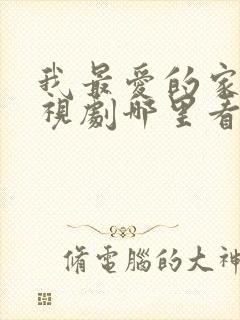 我最愛的家
視劇哪里看
脩電腦的大神